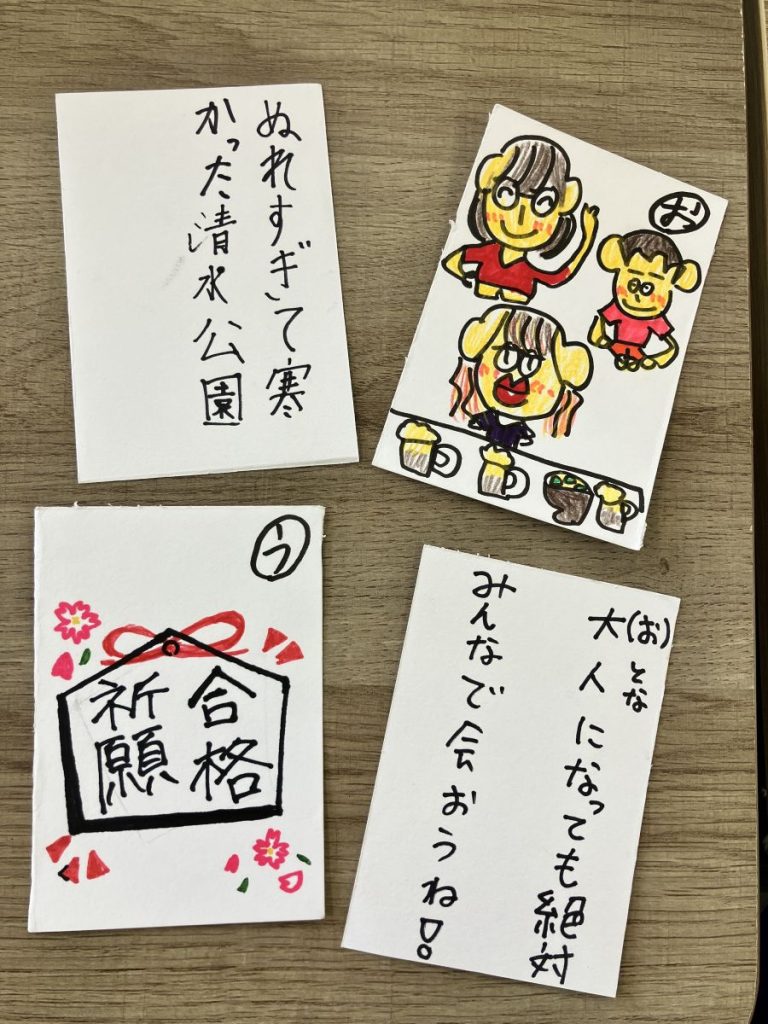 ぬれすぎて寒
かった清水公園
お
う
合格
祈願
大(お)人になっても絶対
とな
みんなで会おうね!